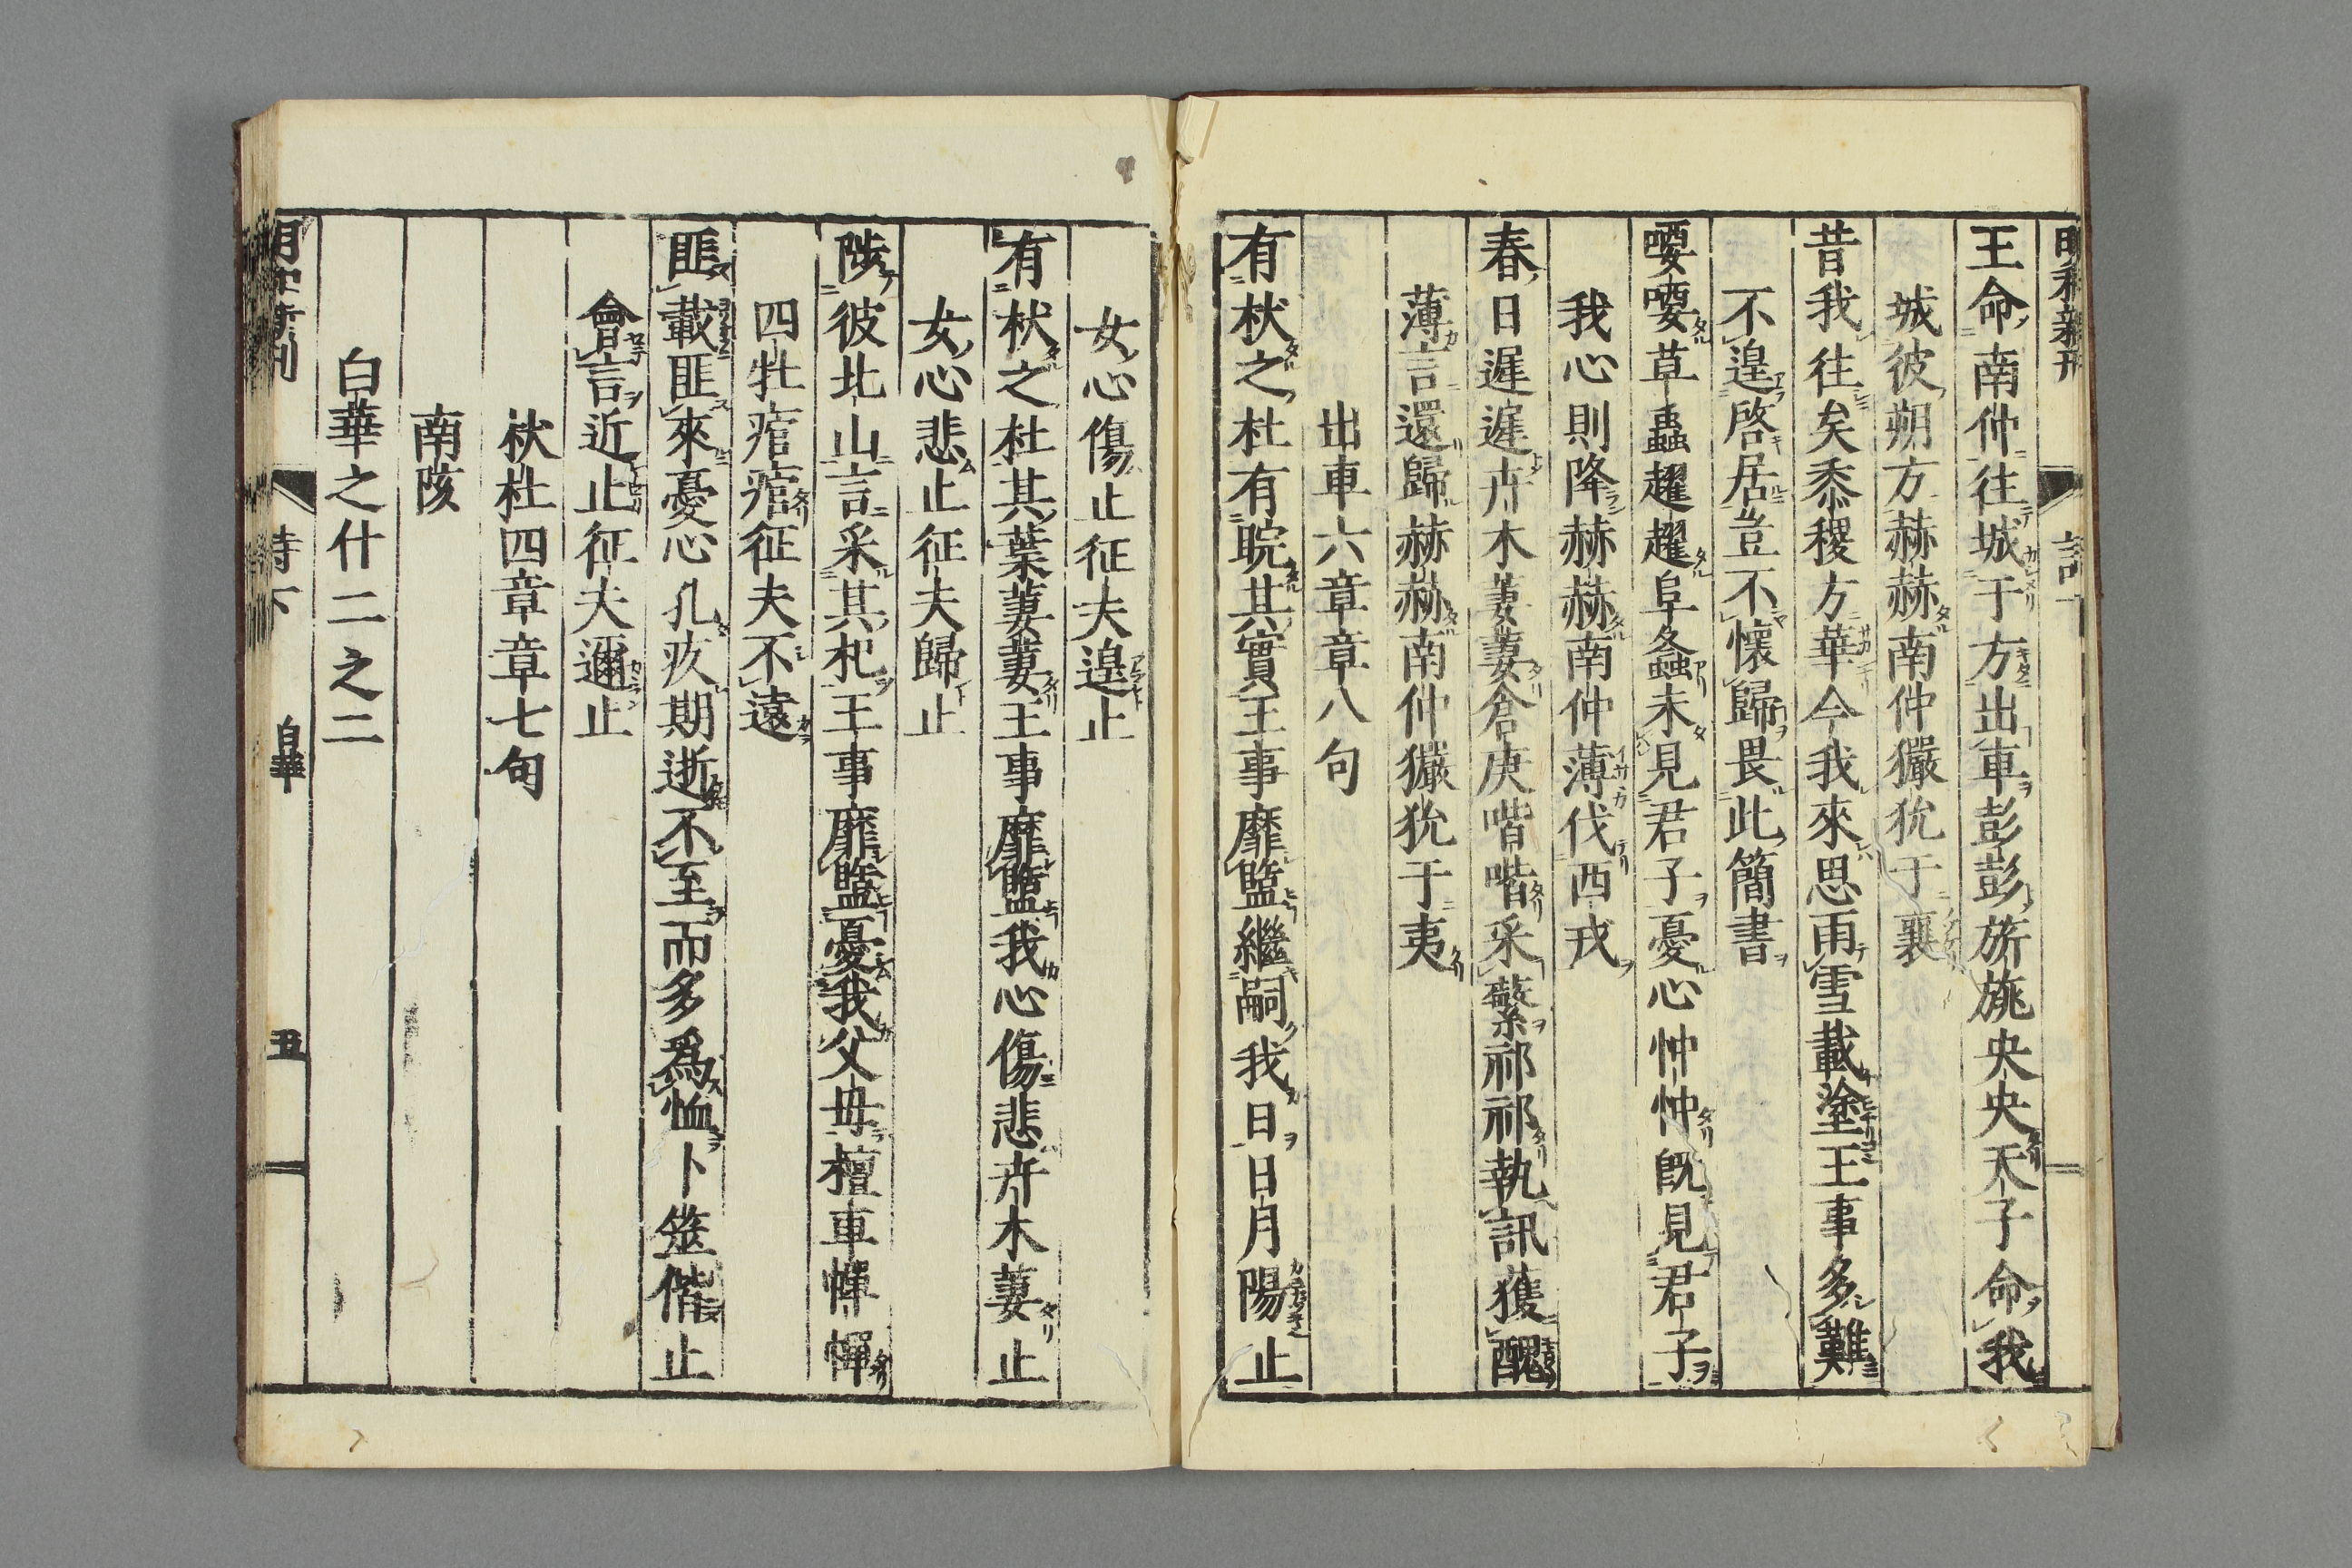 王命南仲往城于方出車彭彭旂旐央央天子命我
城彼朔方赫赫南仲玁狁于襄
昔我往矣黍稷方華今我來思雨雪載塗王事多難
不遑啓居豈不懷歸畏此簡書
喓喓草蟲趯趯阜螽未見君子憂心忡忡旣見君子
我心則降赫赫南仲薄伐西戎
春日遲遲卉木萋萋倉庚喈喈采蘩祁祁執訊獲醜
薄言還歸赫赫南仲玁狁于夷
出車六章章八句
有杕之杜有睆其實王事靡盬繼嗣我日日月陽止
女心傷止征夫遑止
有杕之杜其葉萋萋王事靡盬我心傷悲卉木萋止
女心悲止征夫歸止
陟彼北山言采其杞王事靡盬憂我父母檀車幝幝
四牡痯痯征夫不遠
匪載匪來憂心孔疚期逝不至而多爲恤卜筮偕止
會言近止征夫邇止
杕杜四章章七句
南陔
白華之什二之二
詩下 白華 五